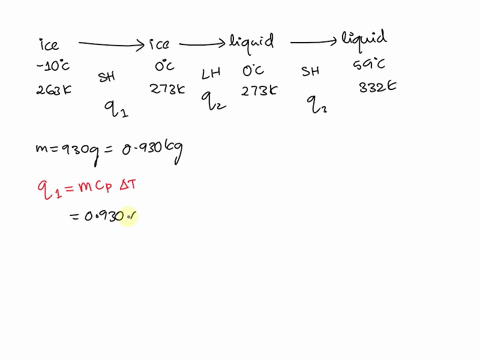 ice → ice → liquid → liquid
-10°C SH 0°C LH 0°C SH 59°C
263K 273K 273K 332K
q1 q2 q3
m = 930g = 0.930kg
q1 = m Cp ΔT
= 0.930